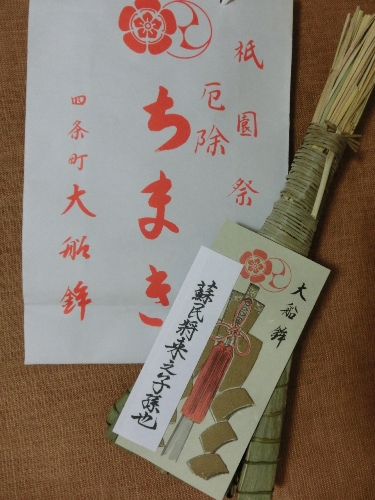 祇園祭
厄除
ちまき
四条町 大船鉾
大船鉾
蘇民将来之子孫也